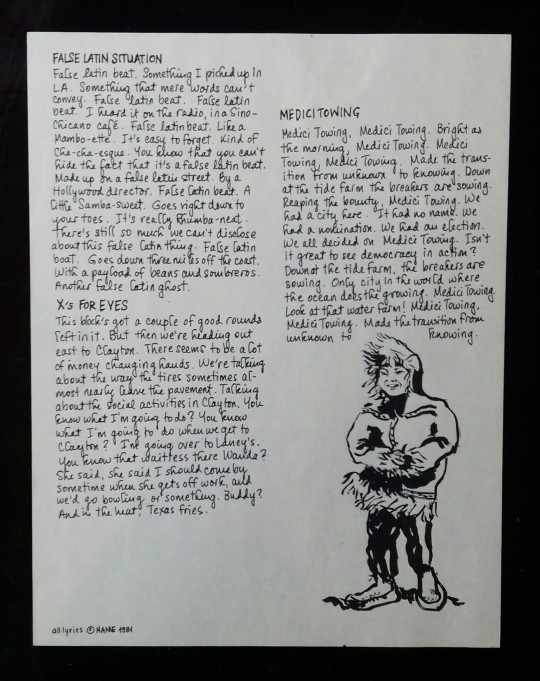 FALSE LATIN SITUATION
False latin beat. Something I picked up in
LA. Something that mere words can't
convey. False latin beat. False latin
beat. I heard it on the radio, in a Sino-
Chicano café. False latin beat. Like a
Mambo-ette. It's easy to forget. Kind of
Cha-cha-esque. You know that you can't
hide the fact that it's a false latin beat.
Made up on a false latin street. By a
Hollywood director. False latin beat. A
little Samba-sweet. Goes right down to
your toes. It's really Rhumba-neat.
There's still so much we can't disclose
about this false latin thing. False latin
boat. Goes down three miles off the coast.
With a payload of beans and sombreros.
Another false latin ghost.
X's FOR EYES
This block's got a couple of good rounds
left in it. But then we're heading out
east to Clayton. There seems to be a lot
of money changing hands. We're talking
about the way the tires sometimes al-
most nearly leave the pavement. Talking
about the social activities in Clayton. You
know what I'm going to do? You know
what I'm going to do when we get to
Clayton? I'm going over to Laney's.
You know that waittess there Wanda?
She said, she said I should come by
sometime when she gets off work, and
we'd go bowling or something. Buddy?
And in the heat, Texas fries.
all lyrics © NANNE 1981
MEDICI TOWING
Medici Towing, Medici Towing. Bright as
the morning, Medici Towing. Medici
Towing, Medici Towing. Made the trans-
ition from unknown to knowing. Down
at the tide farm the breakers are sowing.
Reaping the bounty, Medici Towing. We
had a city here. It had no name. We
had a nomination. We had an election.
We all decided on Medici Towing. Isn't
it great to see democracy in action?
Down at the tide farm, the breakers are
sowing. Only city in the world where
the ocean does the growing. Medici Towing
Look at that water farm! Medici Towing,
Medici Towing. Made the transition from
unknown to knowing.